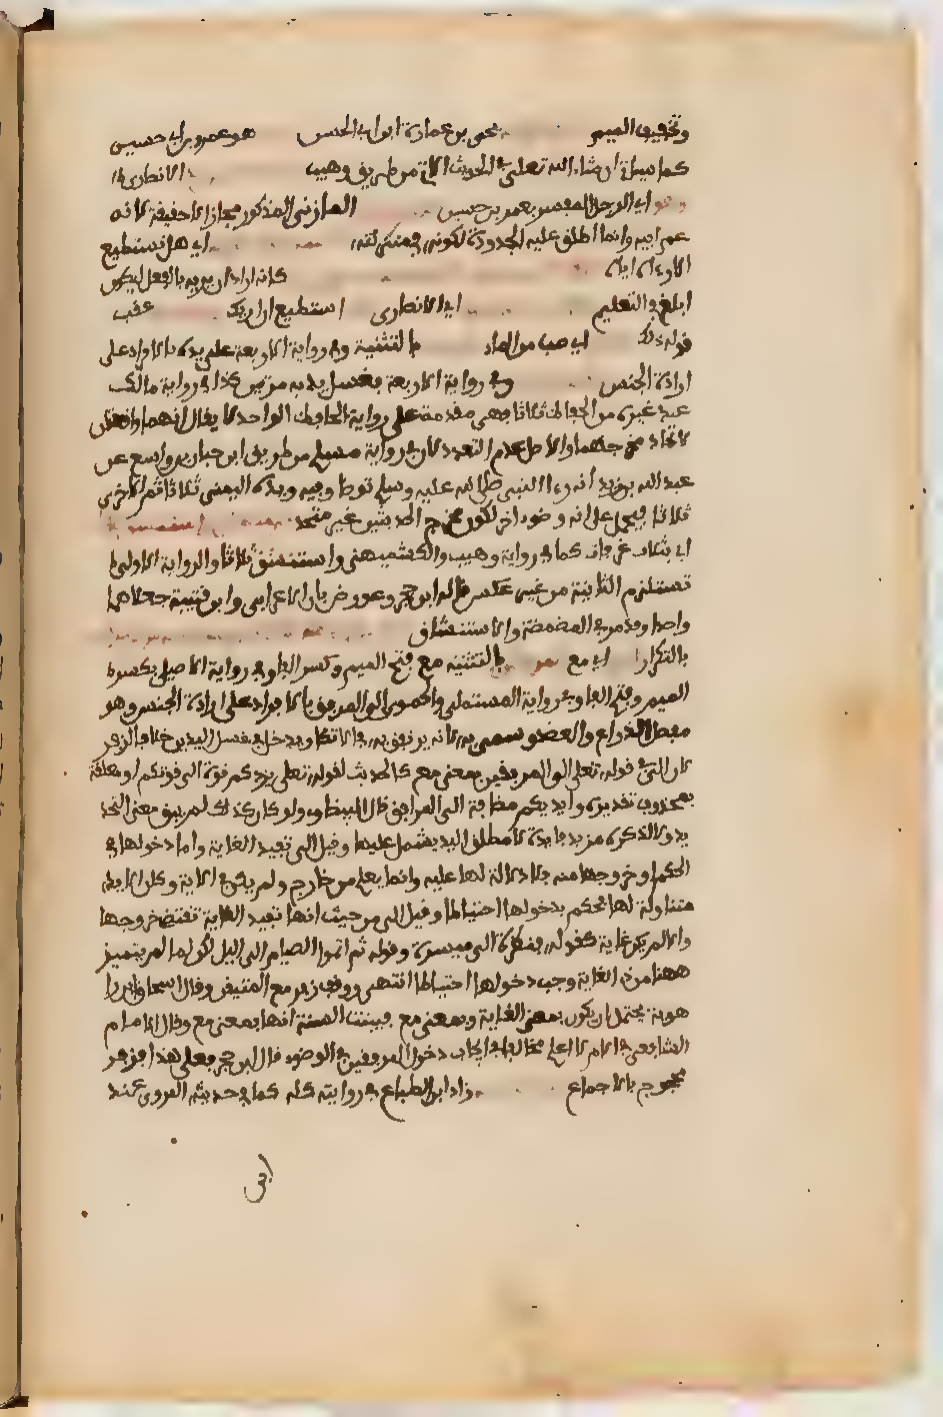 وتخفيف الميم يحيى بن عمارة ابن ابي الحسن هو عمرو بن ابي حسين
كما سياتي ان شاء الله تعلى في الحديث الاتي من طريق وهيب الانصاري
وهو اي الرجل المفسر بعمرو بن حسين المازني المذكور مجازا لا حقيقة لانه
عم ابيه وانما اطلق عليه الجدودة لكونه في منزلته اي هل تستطيع
الاراءة اياي كانه اراد ان يريه بالفعل ليكون
ابلغ في التعليم اي الانصاري استطيع ان اريك عقب
قوله ذلك اي صب من الماء بالتثنية وفي رواية الاربعة على يده بالافراد على
ارادة الجنس وفي رواية الاربعة فغسل يديه مرتين كذا في رواية مالك
عند غيره من الحفاظ ثلاثا فهي مقدمة على رواية الحافظ الواحد لا يقال انهما واقعتان
لاتحاد مخرجهما والاصل عدم التعدد لان في رواية مسلم من طريق ابن حبان بن واسع عن
عبد الله بن زيد أنه رءا النبي صلى الله عليه وسلم توضا وفيه ويده اليمنى ثلاثا ثم الاخرى
ثلاثا فيحمل على انه وضوء اخر لكون مخرج الحديثين غير متحد
اي بثلاث غرفات كما في رواية وهيب وللكشميهني واستنشق ثلاثا والرواية الاولى
تستلزم الثانية من غير عكس قاله ابن حجر وعورض بان ابن الاعرابي وابن قتيبة جعلاهما
واحدا وقد مر في المضمضة والاستنشاق
بالتكرار اي مع بالتثنية مع فتح الميم وكسر الفاء وفي رواية الاصيلي بكسر
الميم وفتح الفاء وفي رواية المستملي والحموي الى المرفق بالافراد على ارادة الجنس وهو
مفصل الذراع والعضد وسمي به لانه يرتفق به في الاتكاء ويدخل في غسل اليدين خلافا لزفر
لان الى في قوله تعلى الى المرافق بمعنى مع كالحديث لقوله تعلى يزدكم قوة الى قوتكم او متعلقة
بمحذوف تقديره وايديكم مضافة الى المرافق قال البيضاوي ولو كان كذلك لم يبق معنى التحد
يد ولا لذكره مزيد فايدة لان مطلق اليد يشتمل عليها وقيل الى تفيد الغاية واما دخولها في
الحكم او خروجها منه فلا دلالة لها عليه وانما يعلم من خارج ولم يكن في الاية وكان الايدي
متناولة لها فحكم بدخولها احتياطا وقيل الى من حيث انها تفيد الغاية تقتضي خروجها
والا لم يكن غاية كقوله فنظرة الى ميسرة وقوله ثم اتموا الصيام الى اليل لكن لما لم يتميز
ههنا من ذي الغاية وجب دخولها احتياطا انتهى ووقف زفر مع المتيقن وقال اسحاق ابن را
هوية يحتمل ان يكون بمعنى الغاية وبمعنى مع فبينت السنة انها بمعنى مع وقال الامام
الشافعي في الام لا اعلم مخالفا في ايجاب دخول المرفقين في الوضوء قال ابن حجر فعلى هذا فزفر
محجوج بالاجماع زاد ابن الطباع في روايته كله كما في حديثه المروي عند
ابن